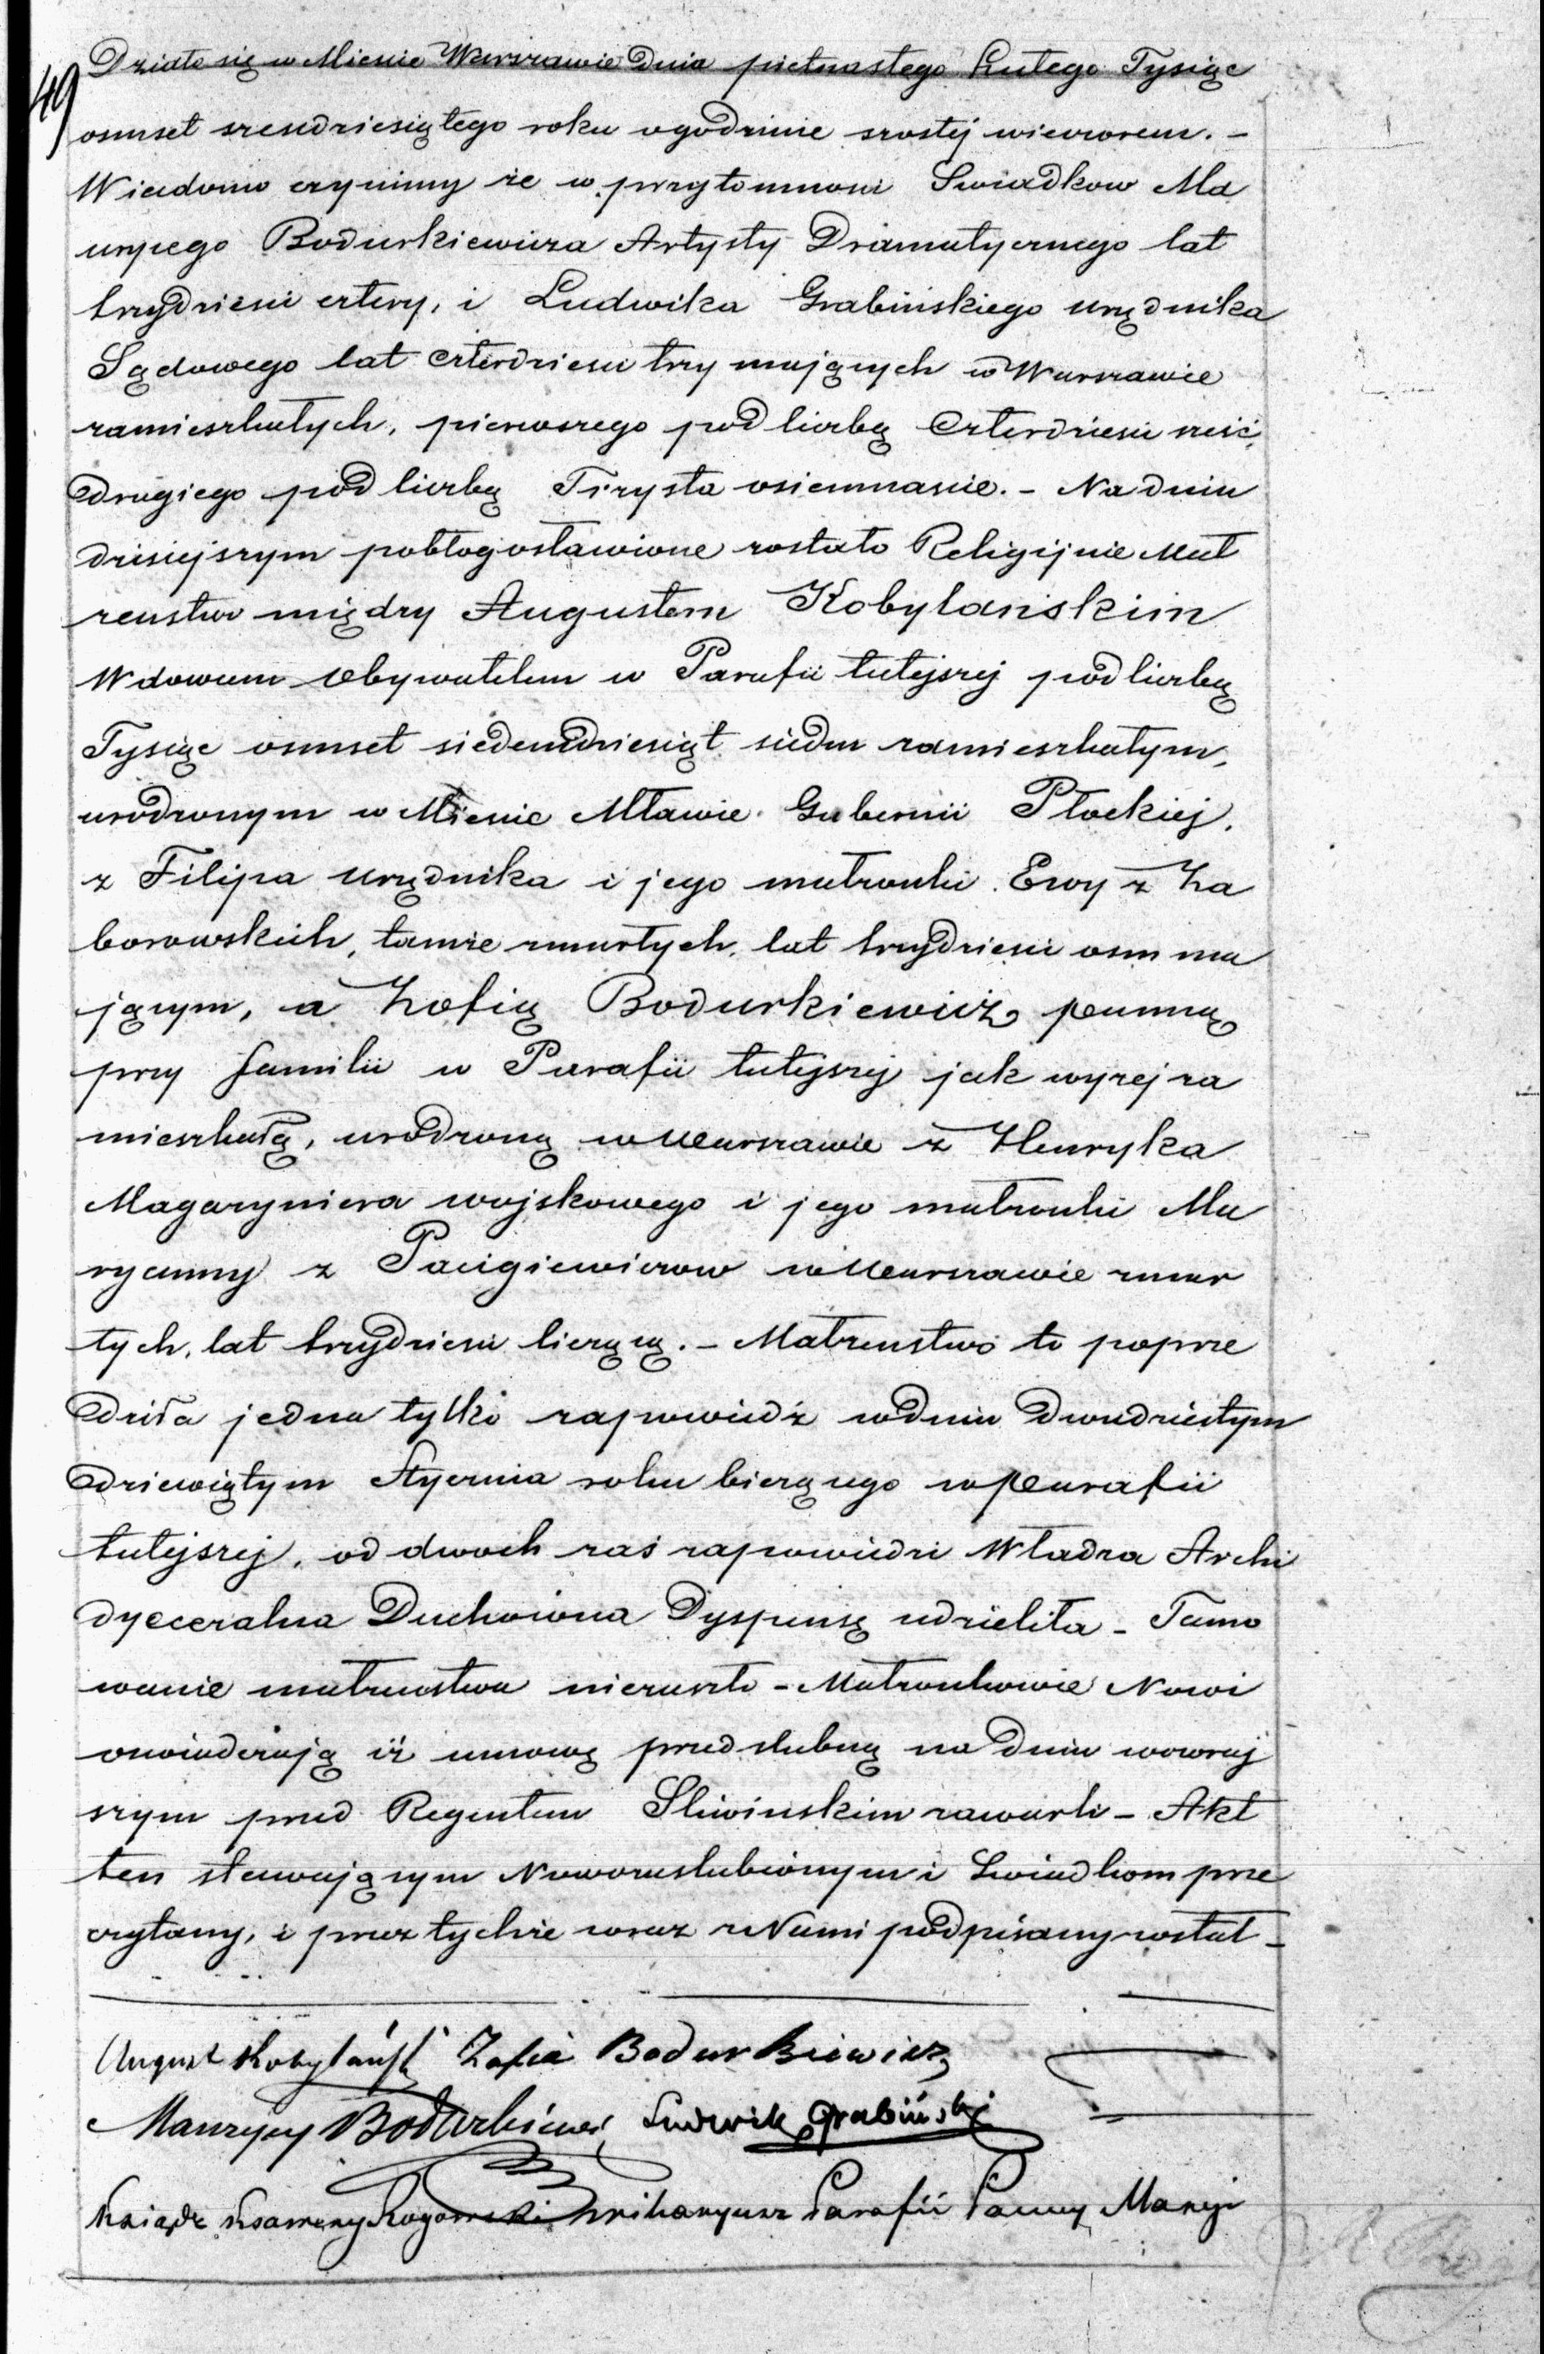 49
Działo się w Mieście Warszawie Dnia piętnastego Lutego Tysiąc
osmset sześdziesiątego roku o godzinie szostej wieczorem. –
Wiadomo czynimy że w przytomnosci Swiadkow Ma
urycego Bodurkiewicza Artysty Dramatycznego lat
trzydziesci cztery, i Ludwika Grabińskiego urzędnika
Sądowego lat czterdziesci trzy mających w Warszawie
zamieszkałych, pierwszego pod liczbą czterdziesci sześć,
drugiego pod liczbą Trzysta osiemnascie. – Na dniu
dzisiejszym pobłogosławione zostało Religijnie Mał
żeństwo między Augustem Kobylańskim
Wdowcem Obywatelem w Parafii tutejszej pod liczbą
Tysiąc osmset siedemdziesiąt siedm zamieszkałym,
urodzonym w Mieście Mławie Gubernii Płockiej,
z Filipa urzędnika i jego małżonki Ewy z Za
borowskich, tamże zmarłych, lat trzydziesci osm ma
jącym, a Zofią Bodurkiewicz, panną
przy familii w Parafii tutejszej jak wyżej za
mieszkałą, urodzoną w Warszawie z Henryka
Magazyniera wojskowego i jego małżonki Ma
ryanny z Pacigiewiczow w Warszawie zmar
łych, lat trzydziesci liczącą. – Małżenstwo to poprze
dziła jedna tylko zapowiedź w dniu dwudziestym
dziewiątym Stycznia roku bieżącego w Parafii
tutejszej, od dwoch zaś zapowiedzi Władza Archi
dyecezalna Duchowna Dyspensę udzieliła – Tamo
wanie małżenstwa nie zaszło – Małżonkowie Nowi
oswiadczają iż umowę przedslubną na dniu wczoraj
szym przed Regentem Sliwinskim zawarli – Akt
ten stawającym Nowozaslubionym i Swiadkom prze
czytany, i przez tychże wraz z Nami podpisany został –
August Kobylański Zofia Bodurkiewicz
Maurycy Bodurkiewicz Ludwik Grabiński
Ksiądz Ksawery Rogowski Wikaryusz Parafii Panny Maryi